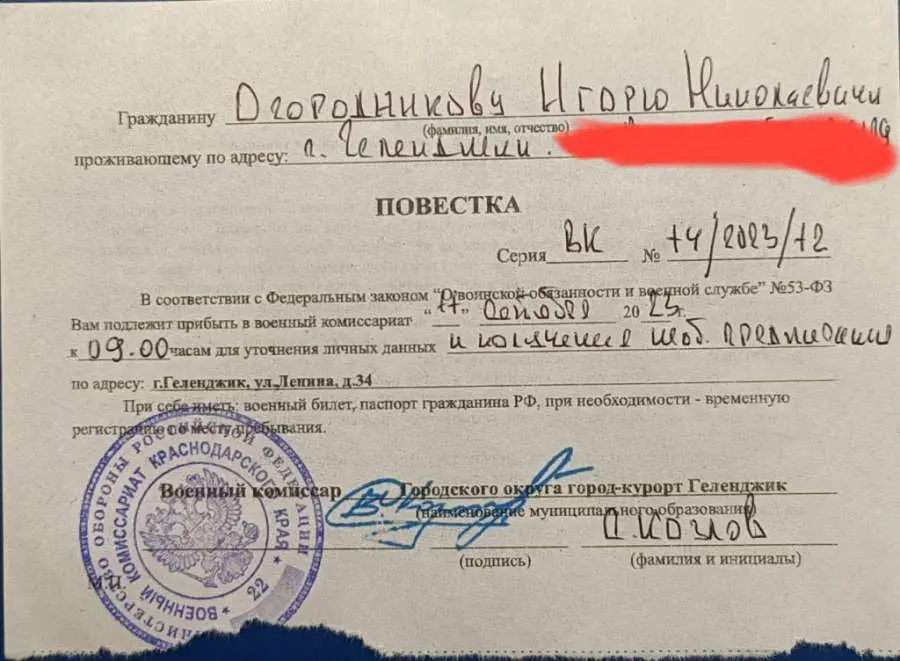 Гражданину Огородникову Игорю Николаевичу
(фамилия, имя, отчество)
проживающему по адресу: г. Геленджик.
ПОВЕСТКА
Серия ВК № 74/2023/12
В соответствии с Федеральным законом “О воинской обязанности и военной службе” №53-ФЗ
Вам подлежит прибыть в военный комиссариат “17” октября 2023г.
к 09.00 часам для уточнения личных данных и получения моб. предписания
по адресу: г.Геленджик, ул.Ленина, д.34
При себе иметь: военный билет, паспорт гражданина РФ, при необходимости - временную
регистрацию по месту пребывания.
Военный комиссар Городского округа город-курорт Геленджик
(наименование муниципального образования)
Козлов
(подпись) (фамилия и инициалы)
М.П.
МИНИСТЕРСТВО ОБОРОНЫ РОССИЙСКОЙ ФЕДЕРАЦИИ
ВОЕННЫЙ КОМИССАРИАТ КРАСНОДАРСКОГО КРАЯ
* 22 *